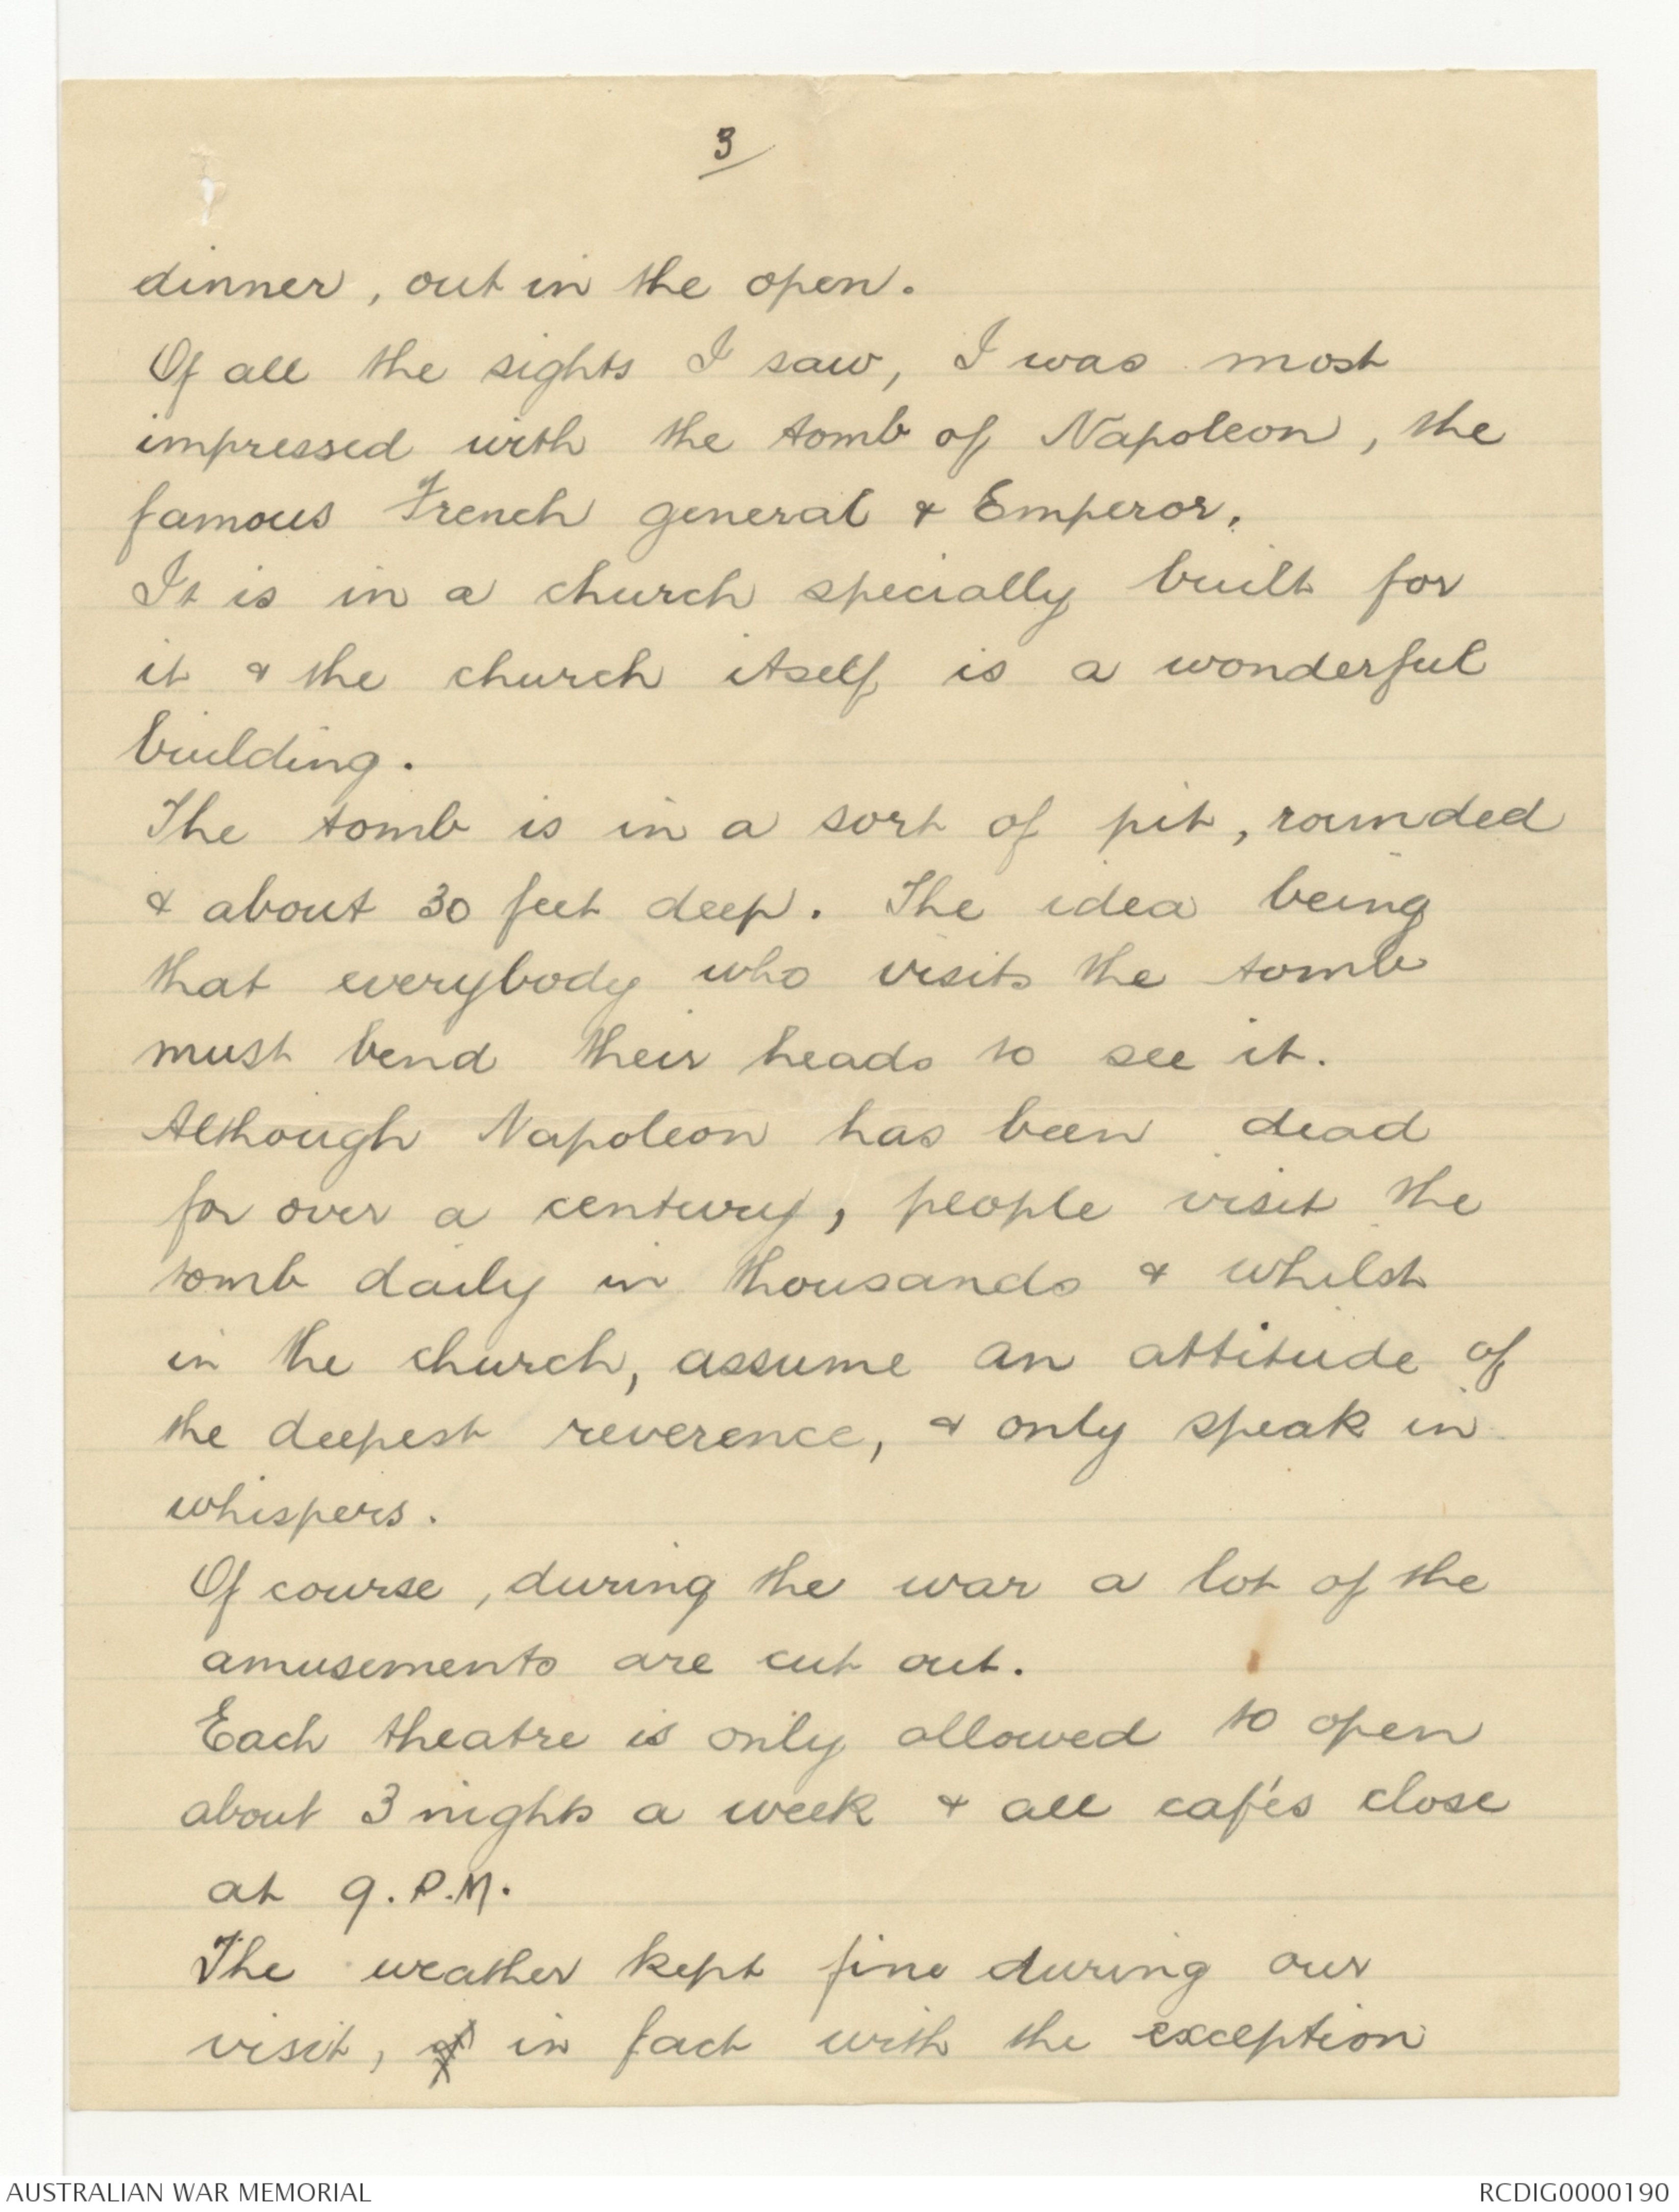 3
dinner, out in the open.
Of all the sights I saw, I was most
impressed with the tomb of Napoleon, the
famous French general & Emperor.
It is in a church specially built for
it & the church itself is a wonderful
building.
The tomb is in a sort of pit, rounded
& about 30 feet deep. The idea being
that everybody who visits the tomb
must bend their heads to see it.
Although Napoleon has been dead
for over a century, people visit the
tomb daily in thousands & whilst
in the church, assume an attitude of
the deepest reverence, & only speak in
whispers.
Of course, during the war a lot of the
amusements are cut out.
Each theatre is only allowed to open
about 3 nights a week & all cafés close
at 9.P.M.
The weather kept fine during our
visit, in fact with the exception
AUSTRALIAN WAR MEMORIAL
RCDIG0000190